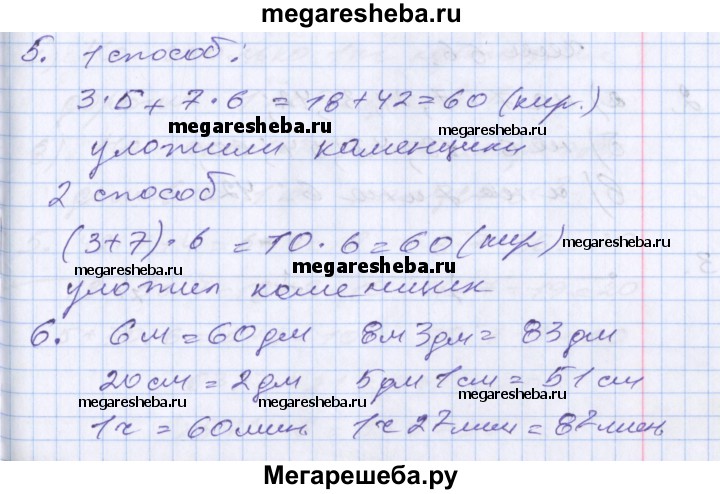 megaresheba.ru
5. 1 способ:
3·5+7·6=18+42=60 (кир.)
megaresheba.ru megaresheba.ru
уложили каменщики
2 способ
(3+7)·6=10·6=60 (кир)
megaresheba.ru
megaresheba.ru megaresheba.ru
уложил каменщик
6. 6м=60дм 8м 3дм=83дм
megaresheba.ru
20см=2дм 5дм 1см=51см
megaresheba.ru megaresheba.ru megaresheba.ru
1ч=60мин 1ч 27мин=87мин
Мегарешеба.ру